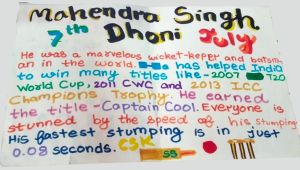 Mahendra Singh
7th Dhoni July
He was a marvelous wicket-keper and batsm
an in the world. He has helped India
to win many titles like-2007 T20
World Cup, 2011 CWC and 2013 ICC
Champions Trophy. He earned
the title-Captain Cool. Everyone is
stunned by the speed of his stumping
His fastest stumping is in just
0.08 seconds. CSK